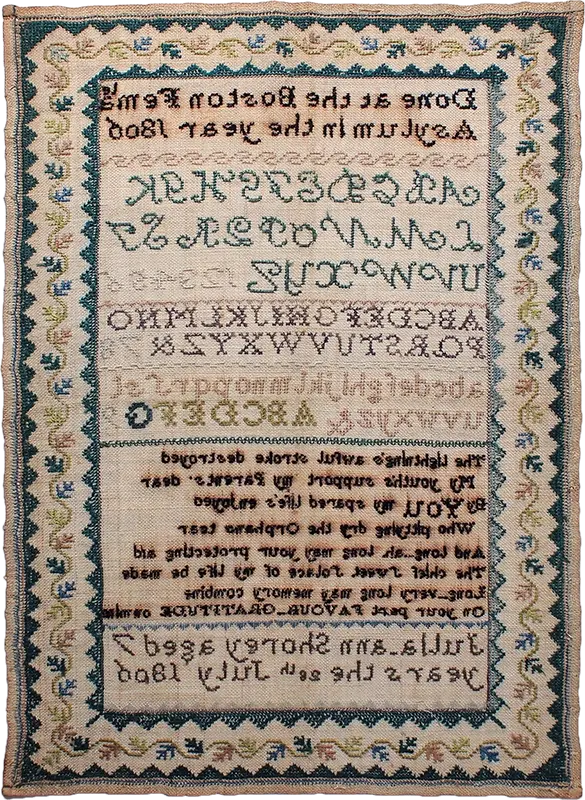 Done at the Boston Fem'l
Asylum in the year 1806
ABCDEFGHIK
LMNOPQRST
UVWXYZ 123456
ABCDEFGHIJKLMNO
PQRSTUVWXYZ& 78
abcdefghijklmnopqrſst
uvwxyz& ABCDEFG
The lightning's awful stroke destroyed
My youth's support my Parents' dear
By YOU my spared life's enjoyed
Who pitying dry the Orphans tear
And long_ah_long may your protecting aid
The chief sweet solace of my life be made
Long_very_long may memory combine
On your part FAVOUR_GRATITUDE on mine
Julia.ann Shorey aged 7
years the 28th July 1806